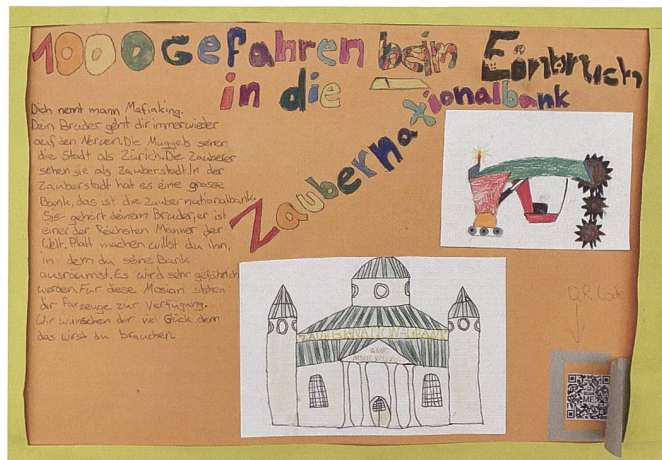 1000 Gefahren beim Einbruch
in die
Zaubernationalbank
Dich nennt mann Mafiaking.
Dein Bruder geht dir immer wieder
auf den Nerven. Die Muggels sehen
die Stadt als Zürich. Die Zauberer
sehen sie als Zauberstadt. In der
Zauberstadt hat es eine grosse
Bank, das ist die Zaubernationalbank.
Sie gehört deinem Bruder, er ist
einer der Reichsten Männer der
Welt. Platt machen willst du ihn,
in dem du seine Bank
ausräumst. Es wird sehr gefährlich
werden. Für diese Mission stehen
dir farzeuge zur Verfügung.
Wir wünschen dir viel Glück denn
das wirst du brauchen.
QR Code